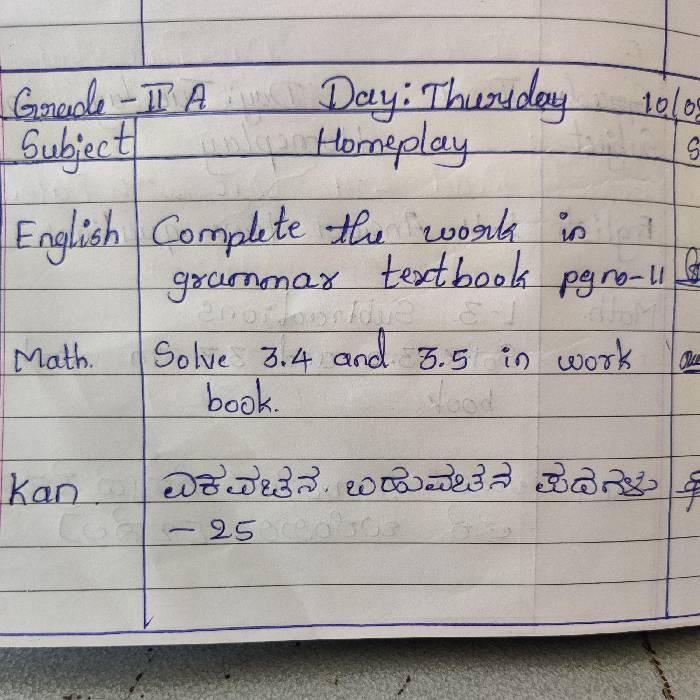 Grade - II A Day: Thursday 10/08
Subject Homeplay S
English Complete the work in
grammar textbook pg no-11
Math. Solve 3.4 and 3.5 in work
book.
Kan ಏಕವಚನ. ಬಹುವಚನ ಪದಗಳು
- 25